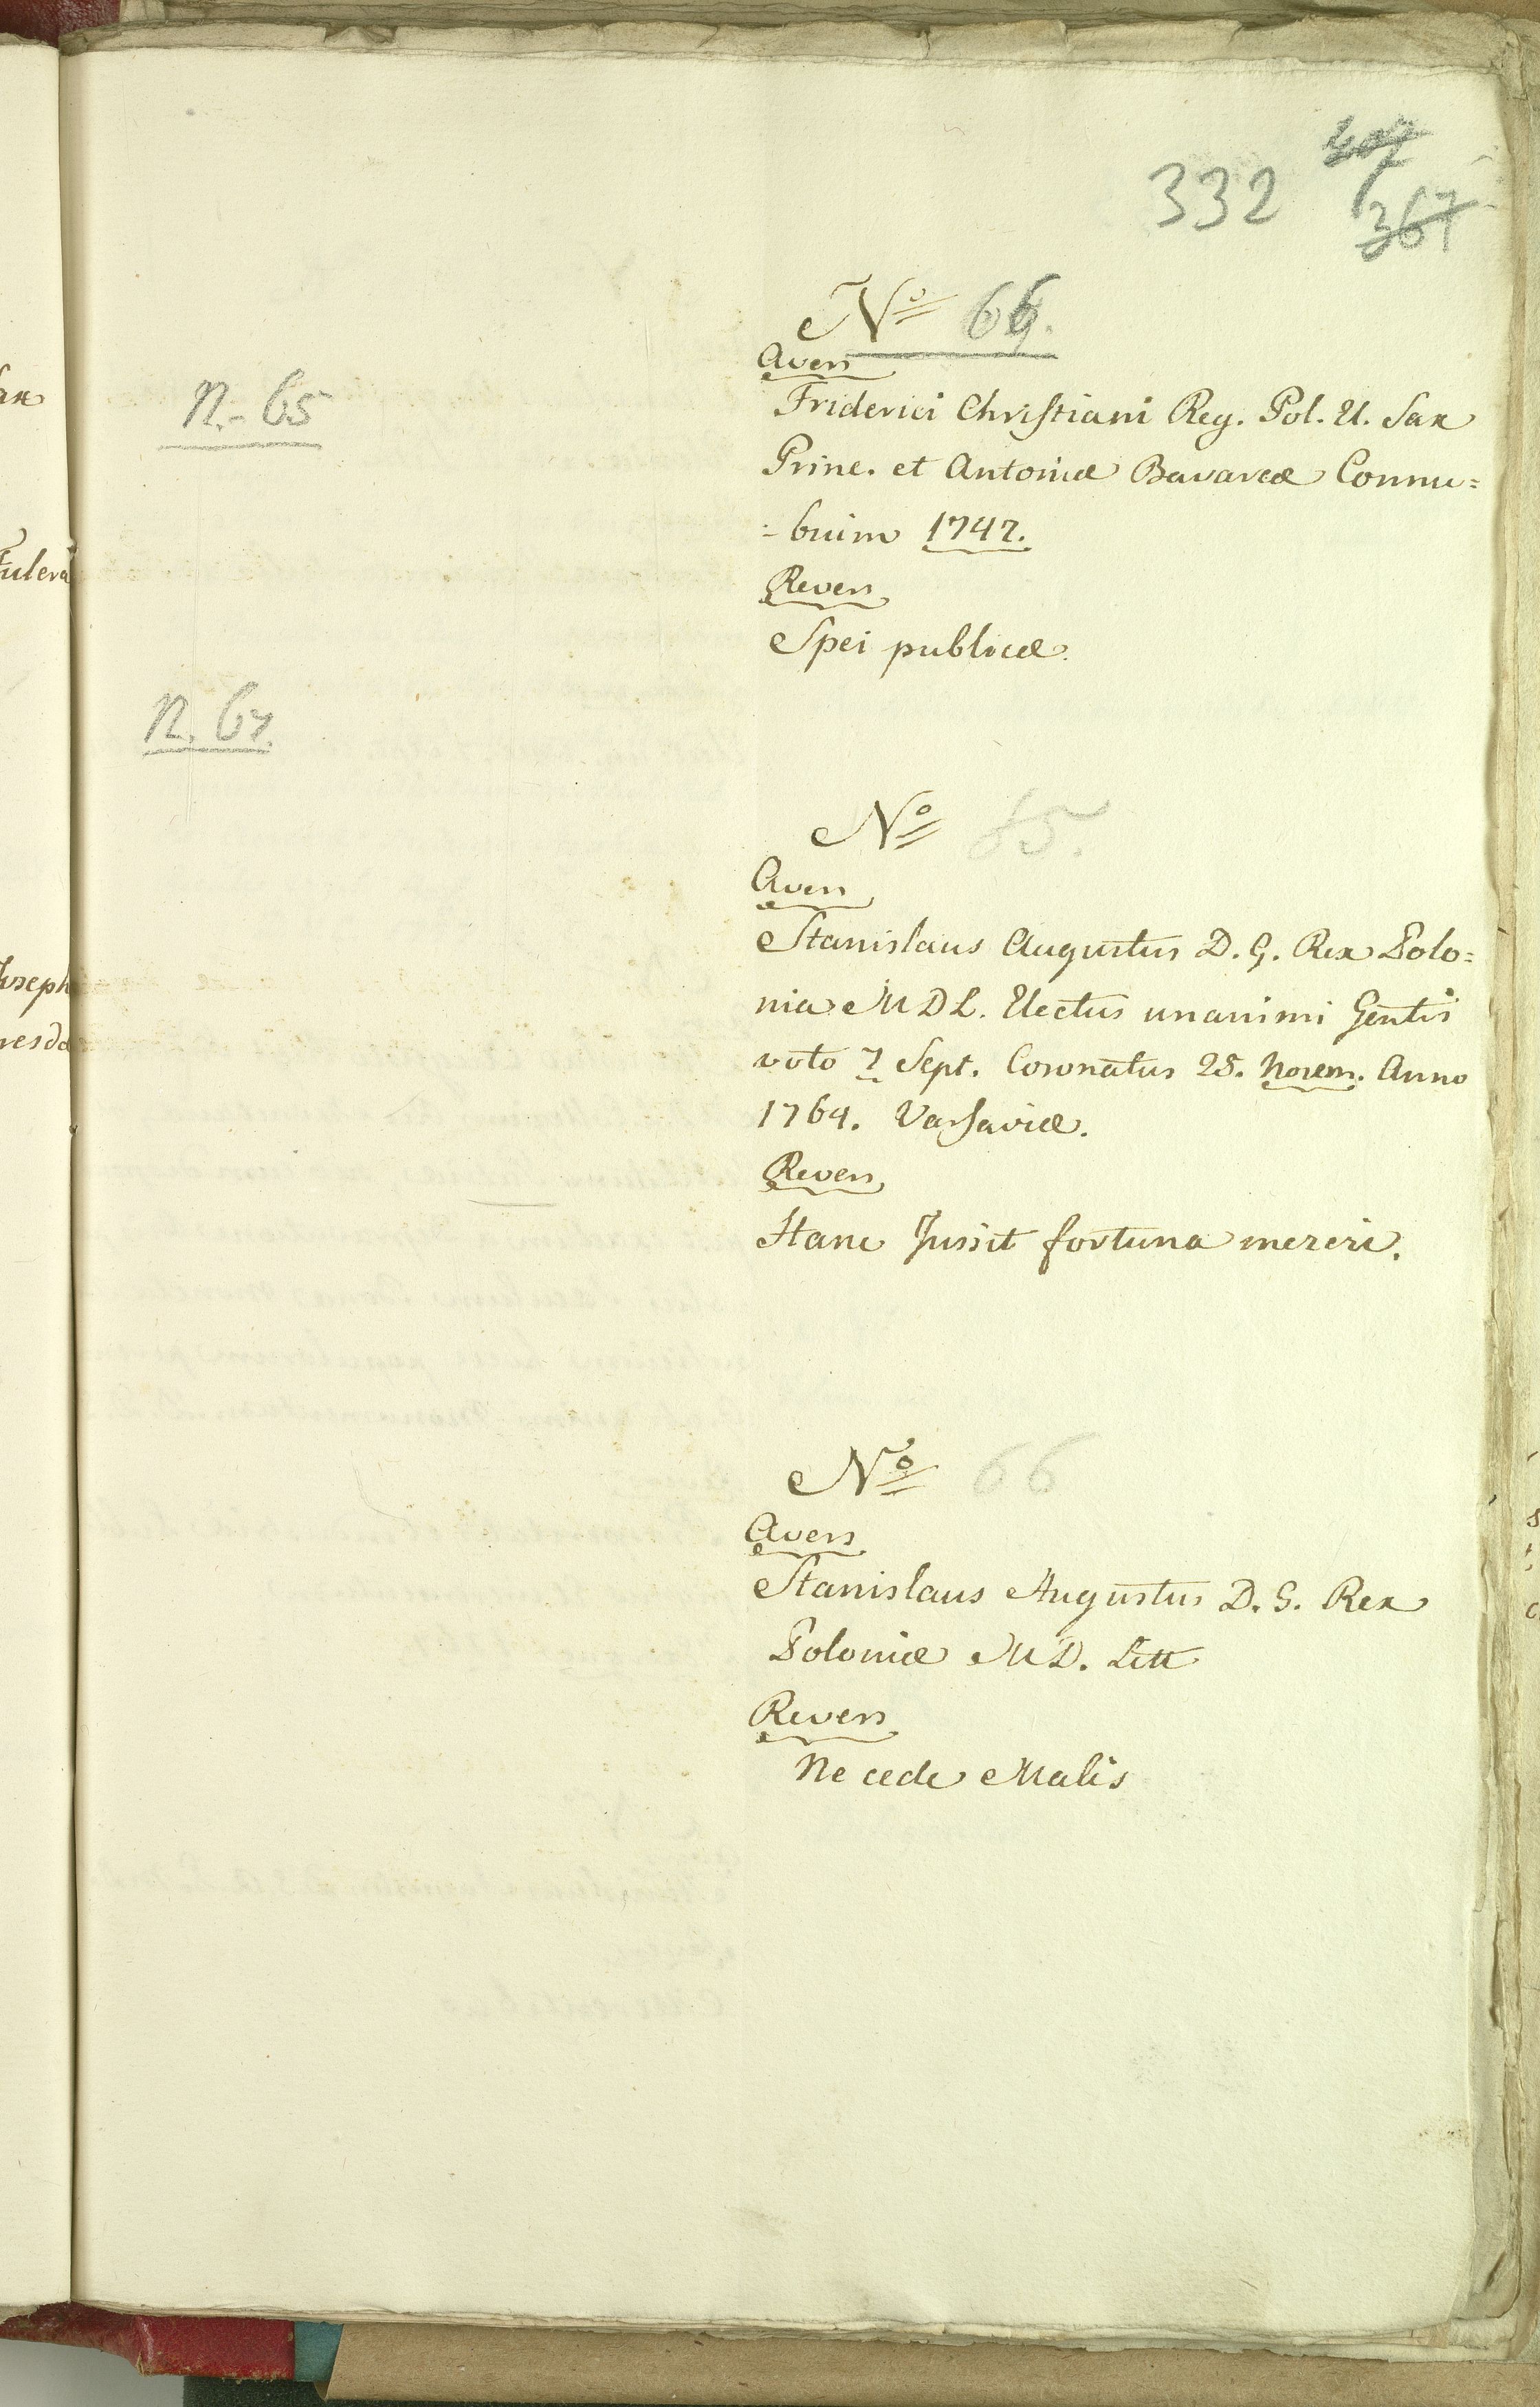 332
367
Nº 66.
Avers
n.- 65
Friderici Christiani Reg. Pol. El. Sax
Princ. et Antoniæ Bavaræ Connu=
=buim 1747.
Revers
Spei publicæ.
n. 67.
Nº 65.
Avers
Stanislaus Augustus D. G. Rex Polo=
nia MDL. Electus unanimi Gentis
voto 7 Sept. Coronatus 25. Novem. Anno
1764. Varsaviæ.
Revers
Hanc Jussit fortuna mereri.
Nº 66
Avers
Stanislaus Augustus D. G. Rex
Poloniæ MD. Litt
Revers
Ne cede Malis